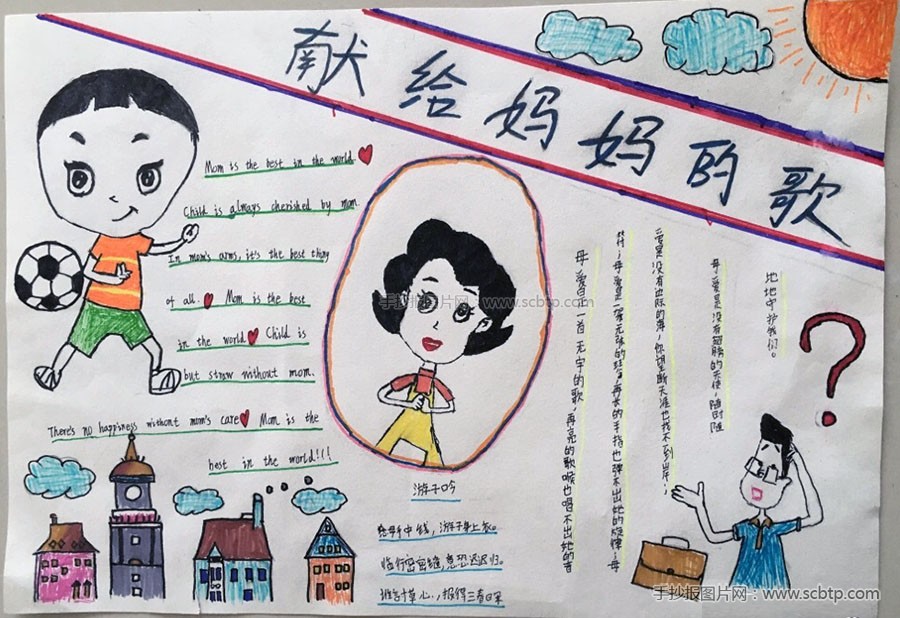 献给妈妈的歌
Mom is the best in the world
Child is always cherished by mom.
In mom's arms, it's the best thing
of all. Mom is the best
in the world Child is
but straw without mom.
There's no happiness without mom's care Mom is the
best in the world!(!
游子吟
慈母手中线，游子身上衣。
临行密密缝，意恐迟迟归。
谁言寸草心，报得三春晖
母爱是一首无字的歌，再亮的歌喉也唱不出她的音
符；母爱是一架无弦的琴，再长的手指也弹不出她的旋律；母
爱是没有边际的海，你望断天涯也找不到岸；
母爱是没有翅膀的天使，随时随
地地守护我们。
?
手抄报图片网：www.scbtp.com
手抄报图片网：www.scbtp.com